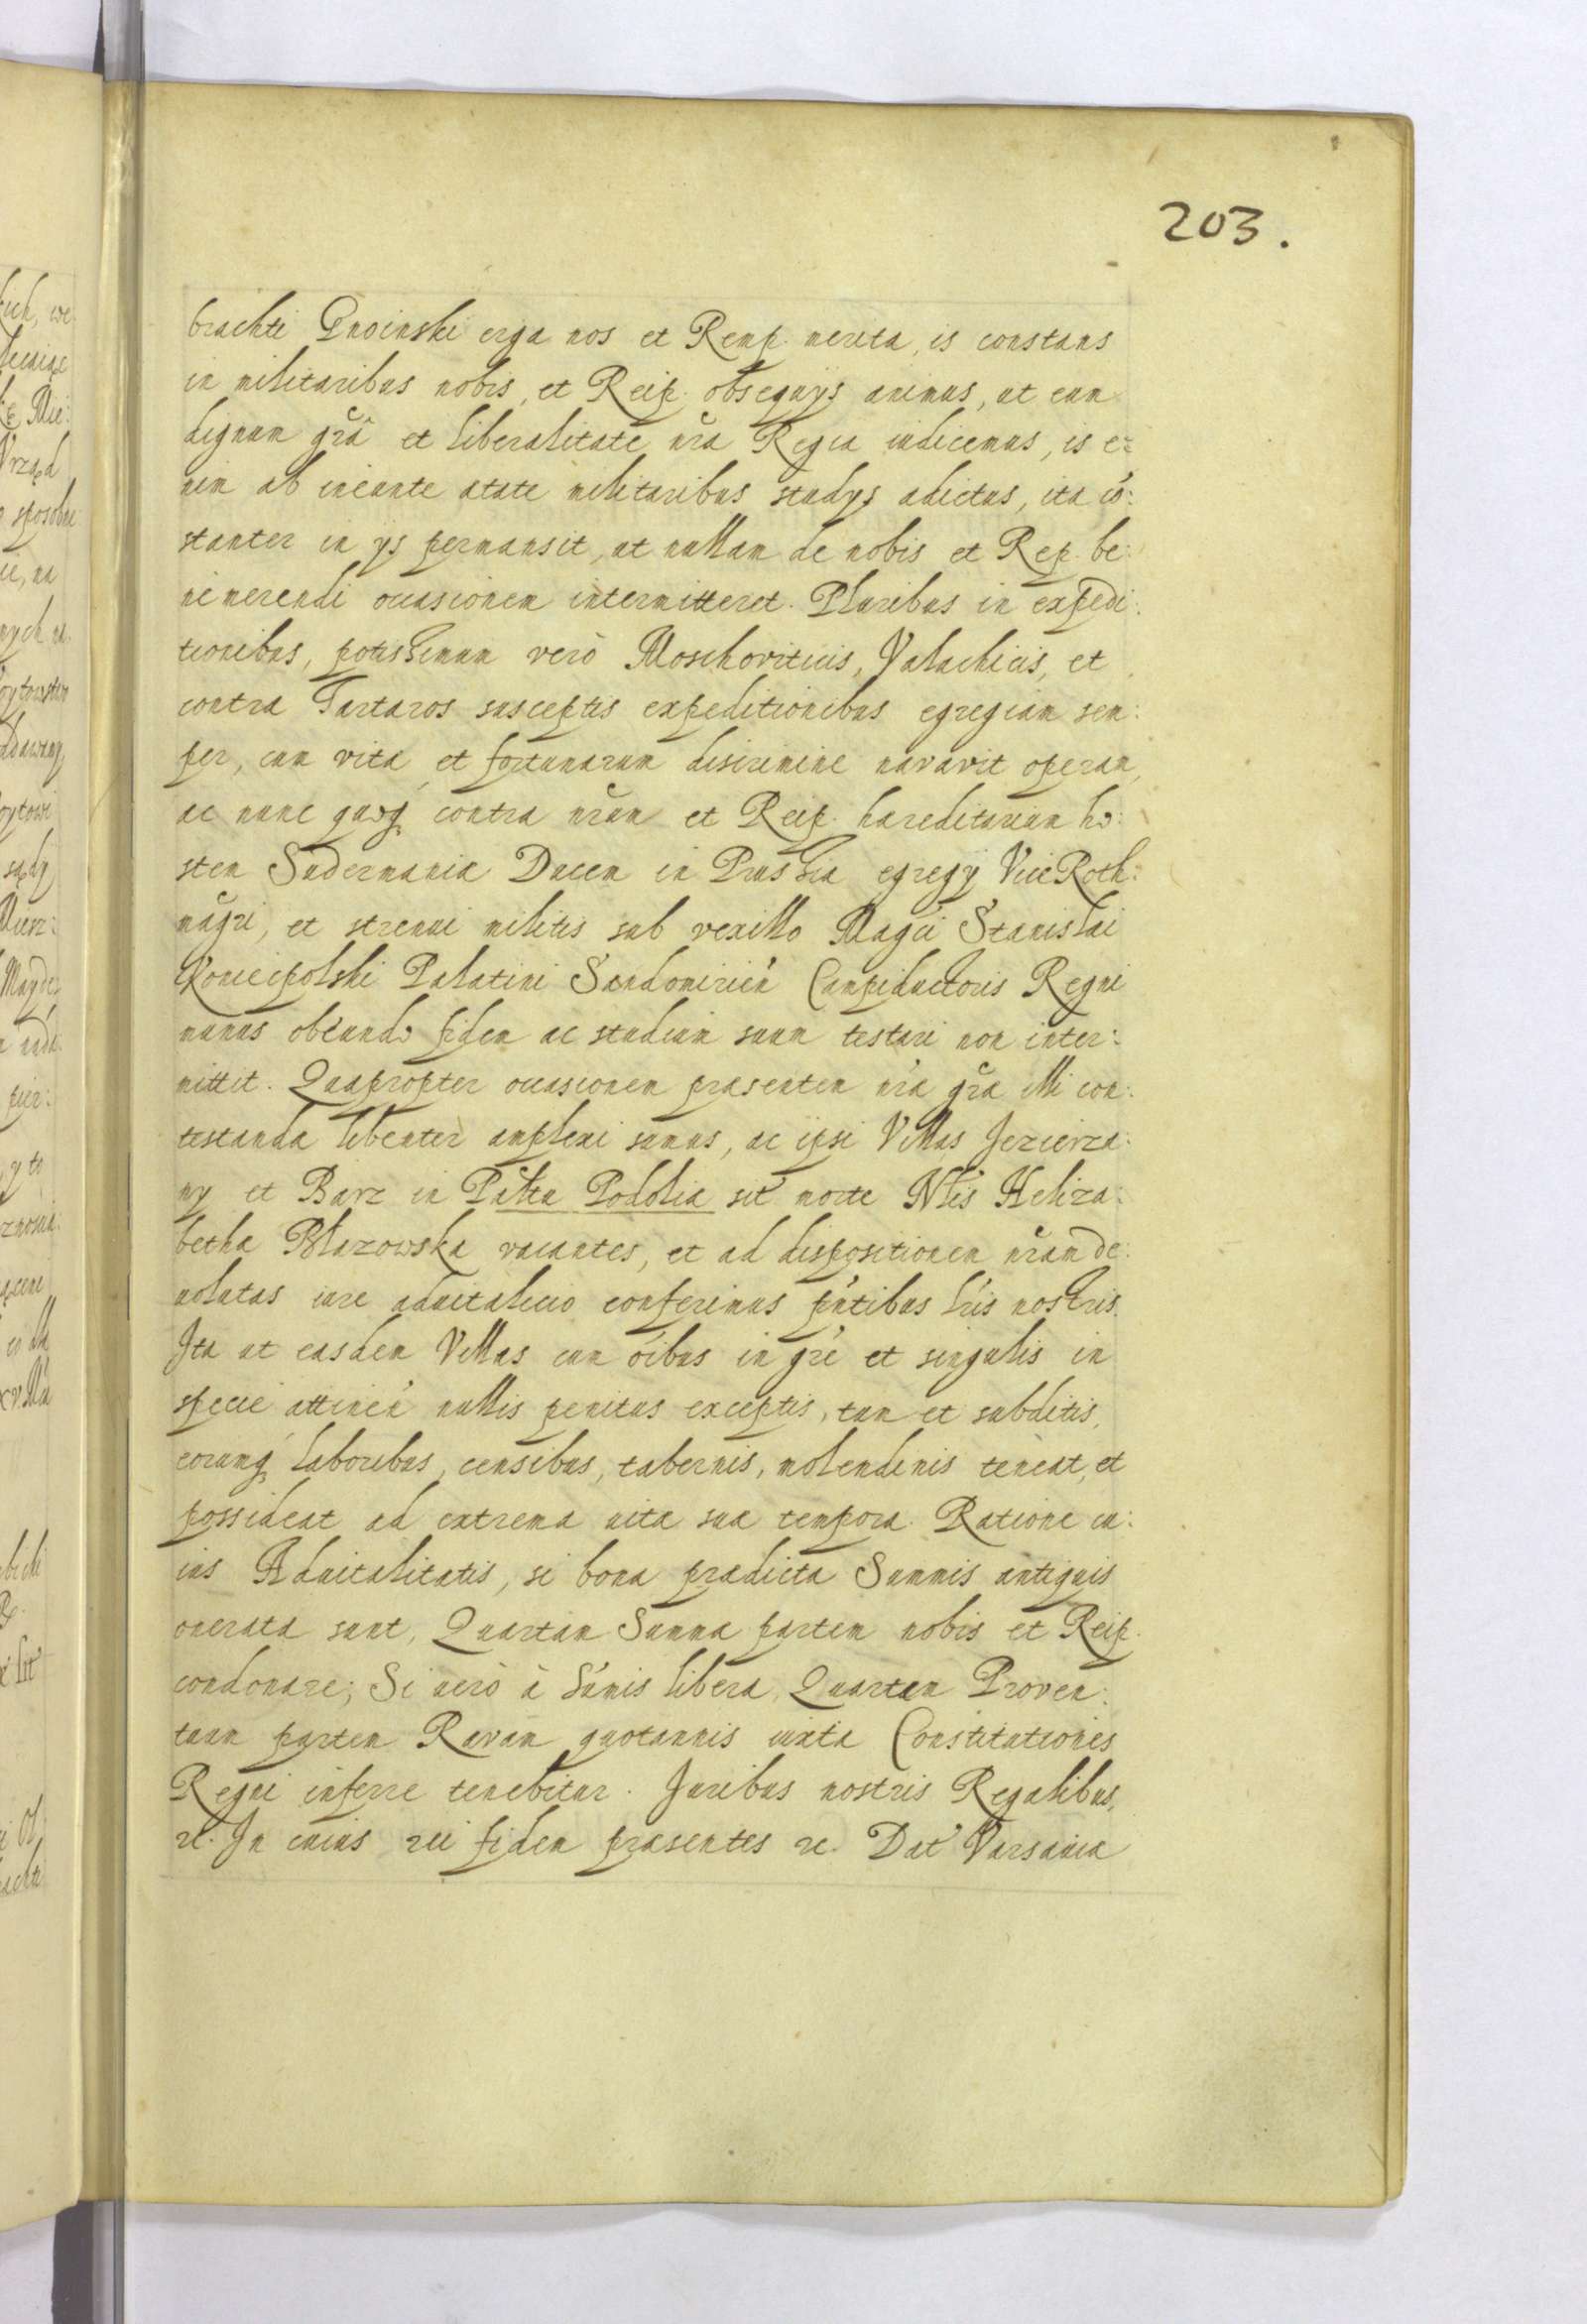 203.
brachti Gnoinski erga nos et Remp. merita, is constans
in militaribus nobis, et Reip. obsequÿs animus, ut eum
dignum grã et liberalitate nra Regia iudicemus, is e=
nim ab ineunte ætate militaribus studÿs adictus, ita cõ:
stanter in ÿs permansit, ut nullam de nobis et Rep. be:
ne merendi occasionem intermitteret. Pluribus in expedi:
tionibus, potissimum verò Moschoviticis, Valachicis, et
contra Tartaros susceptis expeditionibus egregiam sem:
per, cum vitæ et fortunarum discrimine navavit operam,
ac nunc quoq contra nram et Reip. hæreditarium ho:
stem Sudermaniæ Ducem in Prussia egregÿ Vice Roth:
magri, et strenui militis sub vexillo Magci Stanislai
Koniecpolski Palatini Sandomirien Campiductoris Regni
munus obeundo fidem ac studium suum testari non inter:
mittit. Quapropter occasionem præsentem nræ græ illi con:
testandæ libenter amplexi sumus, ac ipsi Villas Jezierza:
ny et Barz in Paltu Podoliæ sit morte Nlis Heliza:
bethæ Błazowska vacantes, et ad dispositionem nram de:
uolutas iure aduitalicio conferimus pntibus lris nostris.
Ita ut easdem Villas cum oibus in gre et singulis in
specie attinen nullis penitus exceptis, tum et subditis,
eorumq laboribus, censibus, tabernis, molendinis teneat, et
possideat ad extrema uitæ suæ tempora. Ratione cu:
ius Aduitalitatis, si bona prædicta Summis antiquis
onerata sunt, Quartam Summæ partem nobis et Reip.
condonare; Si uerò à sumis libera, Quartam Proven:
tuum partem Ravam quotannis iuxta Constitutiones
Regni inferre tenebitur. Juribus nostris Regalibus,
rc. In cuius rei fidem præsentes rc. Dat Varsauiæ